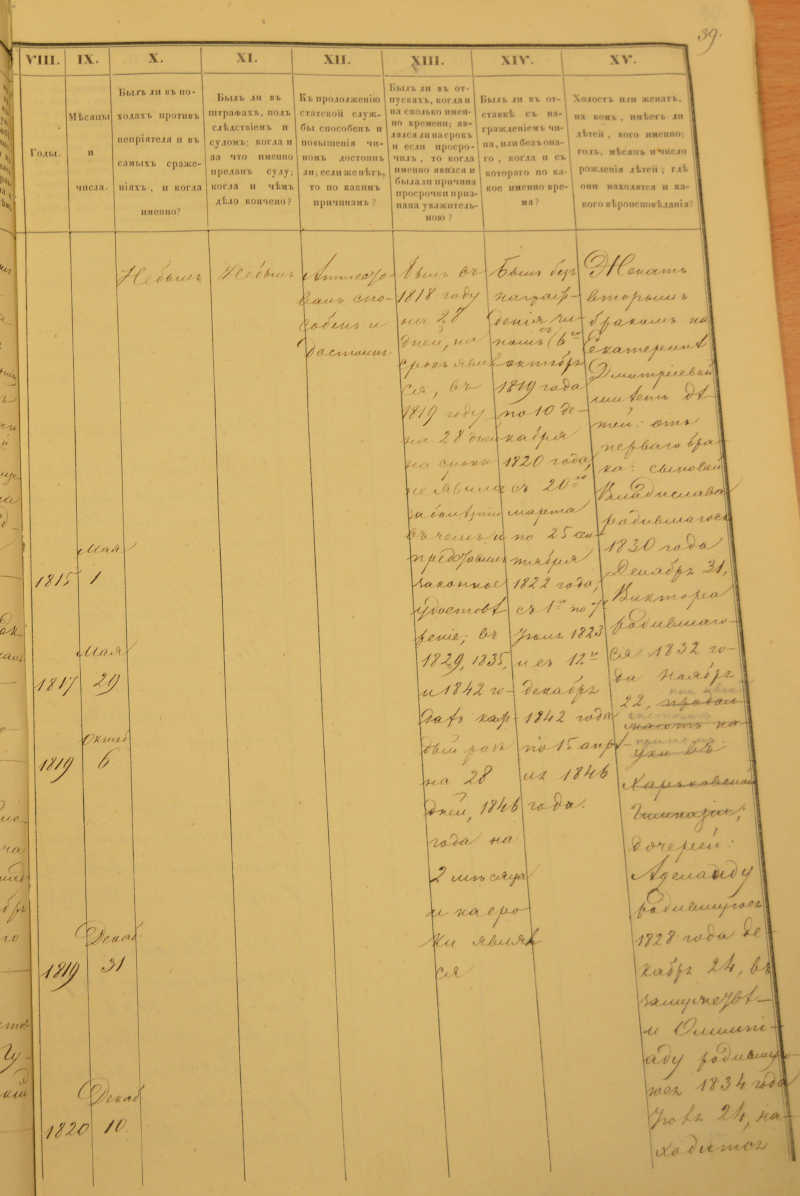 39.
VIII.
Годы.
IX.
Мѣсяцы
и
числа.
X.
Былъ ли въ по-
ходахъ противъ
непріятеля и въ
самыхъ сраже-
ніяхъ, и когда
именно?
XI.
Былъ ли въ
штрафахъ, подъ
слѣдствіемъ и
судомъ; когда и
за что именно
преданъ суду;
когда и чѣмъ
дѣло кончено?
XII.
Къ продолженію
статской служ-
бы способенъ и
повышенія чи-
номъ достоинъ
ли; если же нѣтъ,
то по какимъ
причинамъ?
XIII.
Былъ ли въ от-
пускахъ, когда и
на сколько имен-
но времени; яв-
лялся ли на срокъ
и если просро-
чилъ, то когда
именно явился и
была ли причина
просрочки приз-
нана уважитель-
ною?
XIV.
Былъ ли въ от-
ставкѣ съ на-
гражденіемъ чи-
на, или безъ она-
го, когда и съ
котораго по ка-
кое именно вре-
мя?
XV.
Холостъ или женатъ,
на комъ, имѣетъ ли
дѣтей, кого именно;
годъ, мѣсяцъ и число
рожденія дѣтей; гдѣ
они находятся и ка-
кого вѣроисповѣданія?
1815
Мая
1
1817
Мая
29
1819
Октяб
6
1819
Декаб
31
1820
Декаб
10
Не былъ
Не былъ
Аттесто-
ванъ спо-
собенъ и
достоинъ
былъ въ
1818 году
на 28
дней, на
срокъ явил
ся, въ
1819 году
на 28 дней
на срокъ
не явился
за болѣзнію
въ чемъ и
представилъ
законное
удостовѣ
реніе; въ
1829, 1835,
и 1842 го-
дахъ каж-
дый разъ
на 28
дней, 1846
года на
2 мѣсяца
и на сро-
ки являл
ся
Былъ безъ
награж-
денія чи-
номъ съ 6го
октября
1819 года
по 10 де-
кабря
1820 года,
съ 20го
марта
по 25 сен-
тября
1822 года,
съ 1го по 7е
Іюля 1823
и съ 12го
декабря
1842 года
по 15 апрѣ-
ля 1846
года.
Женатъ
вторымъ
бракомъ на
Екатеринѣ
Дмитріевой
имѣетъ дѣ-
тей: отъ
перваго бра-
ка: сыновей
Владислава
родившагося
1830 года
Декабря 31,
Виктора
родившаго-
ся 1832 го-
да Ноября
22,
въ
Харьковской
Гимназіи,
дочерей:
Аделаиду
родившуюся
1828 года де
кабря 24, въ
замужествѣ
и Олимпі-
аду родившу-
юся 1834 года
Іюля 24, на-
ходится